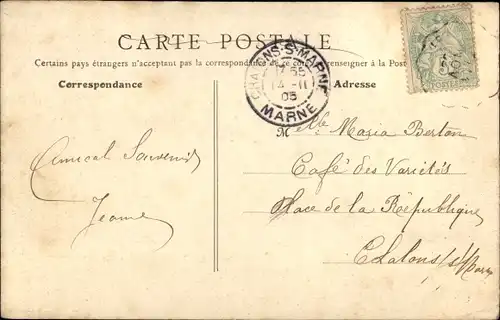 CARTE POSTALE
Certains pays étrangers n'acceptent pas la correspondance de ce côté (se renseigner à la Poste)
Correspondance
Adresse
CHALONS-S-MARNE
05
MARNE
Amical Souvenir
Jeanne
Melle Maria Berton
Café des Variétés
Place de la République
Chalons s/ Marne